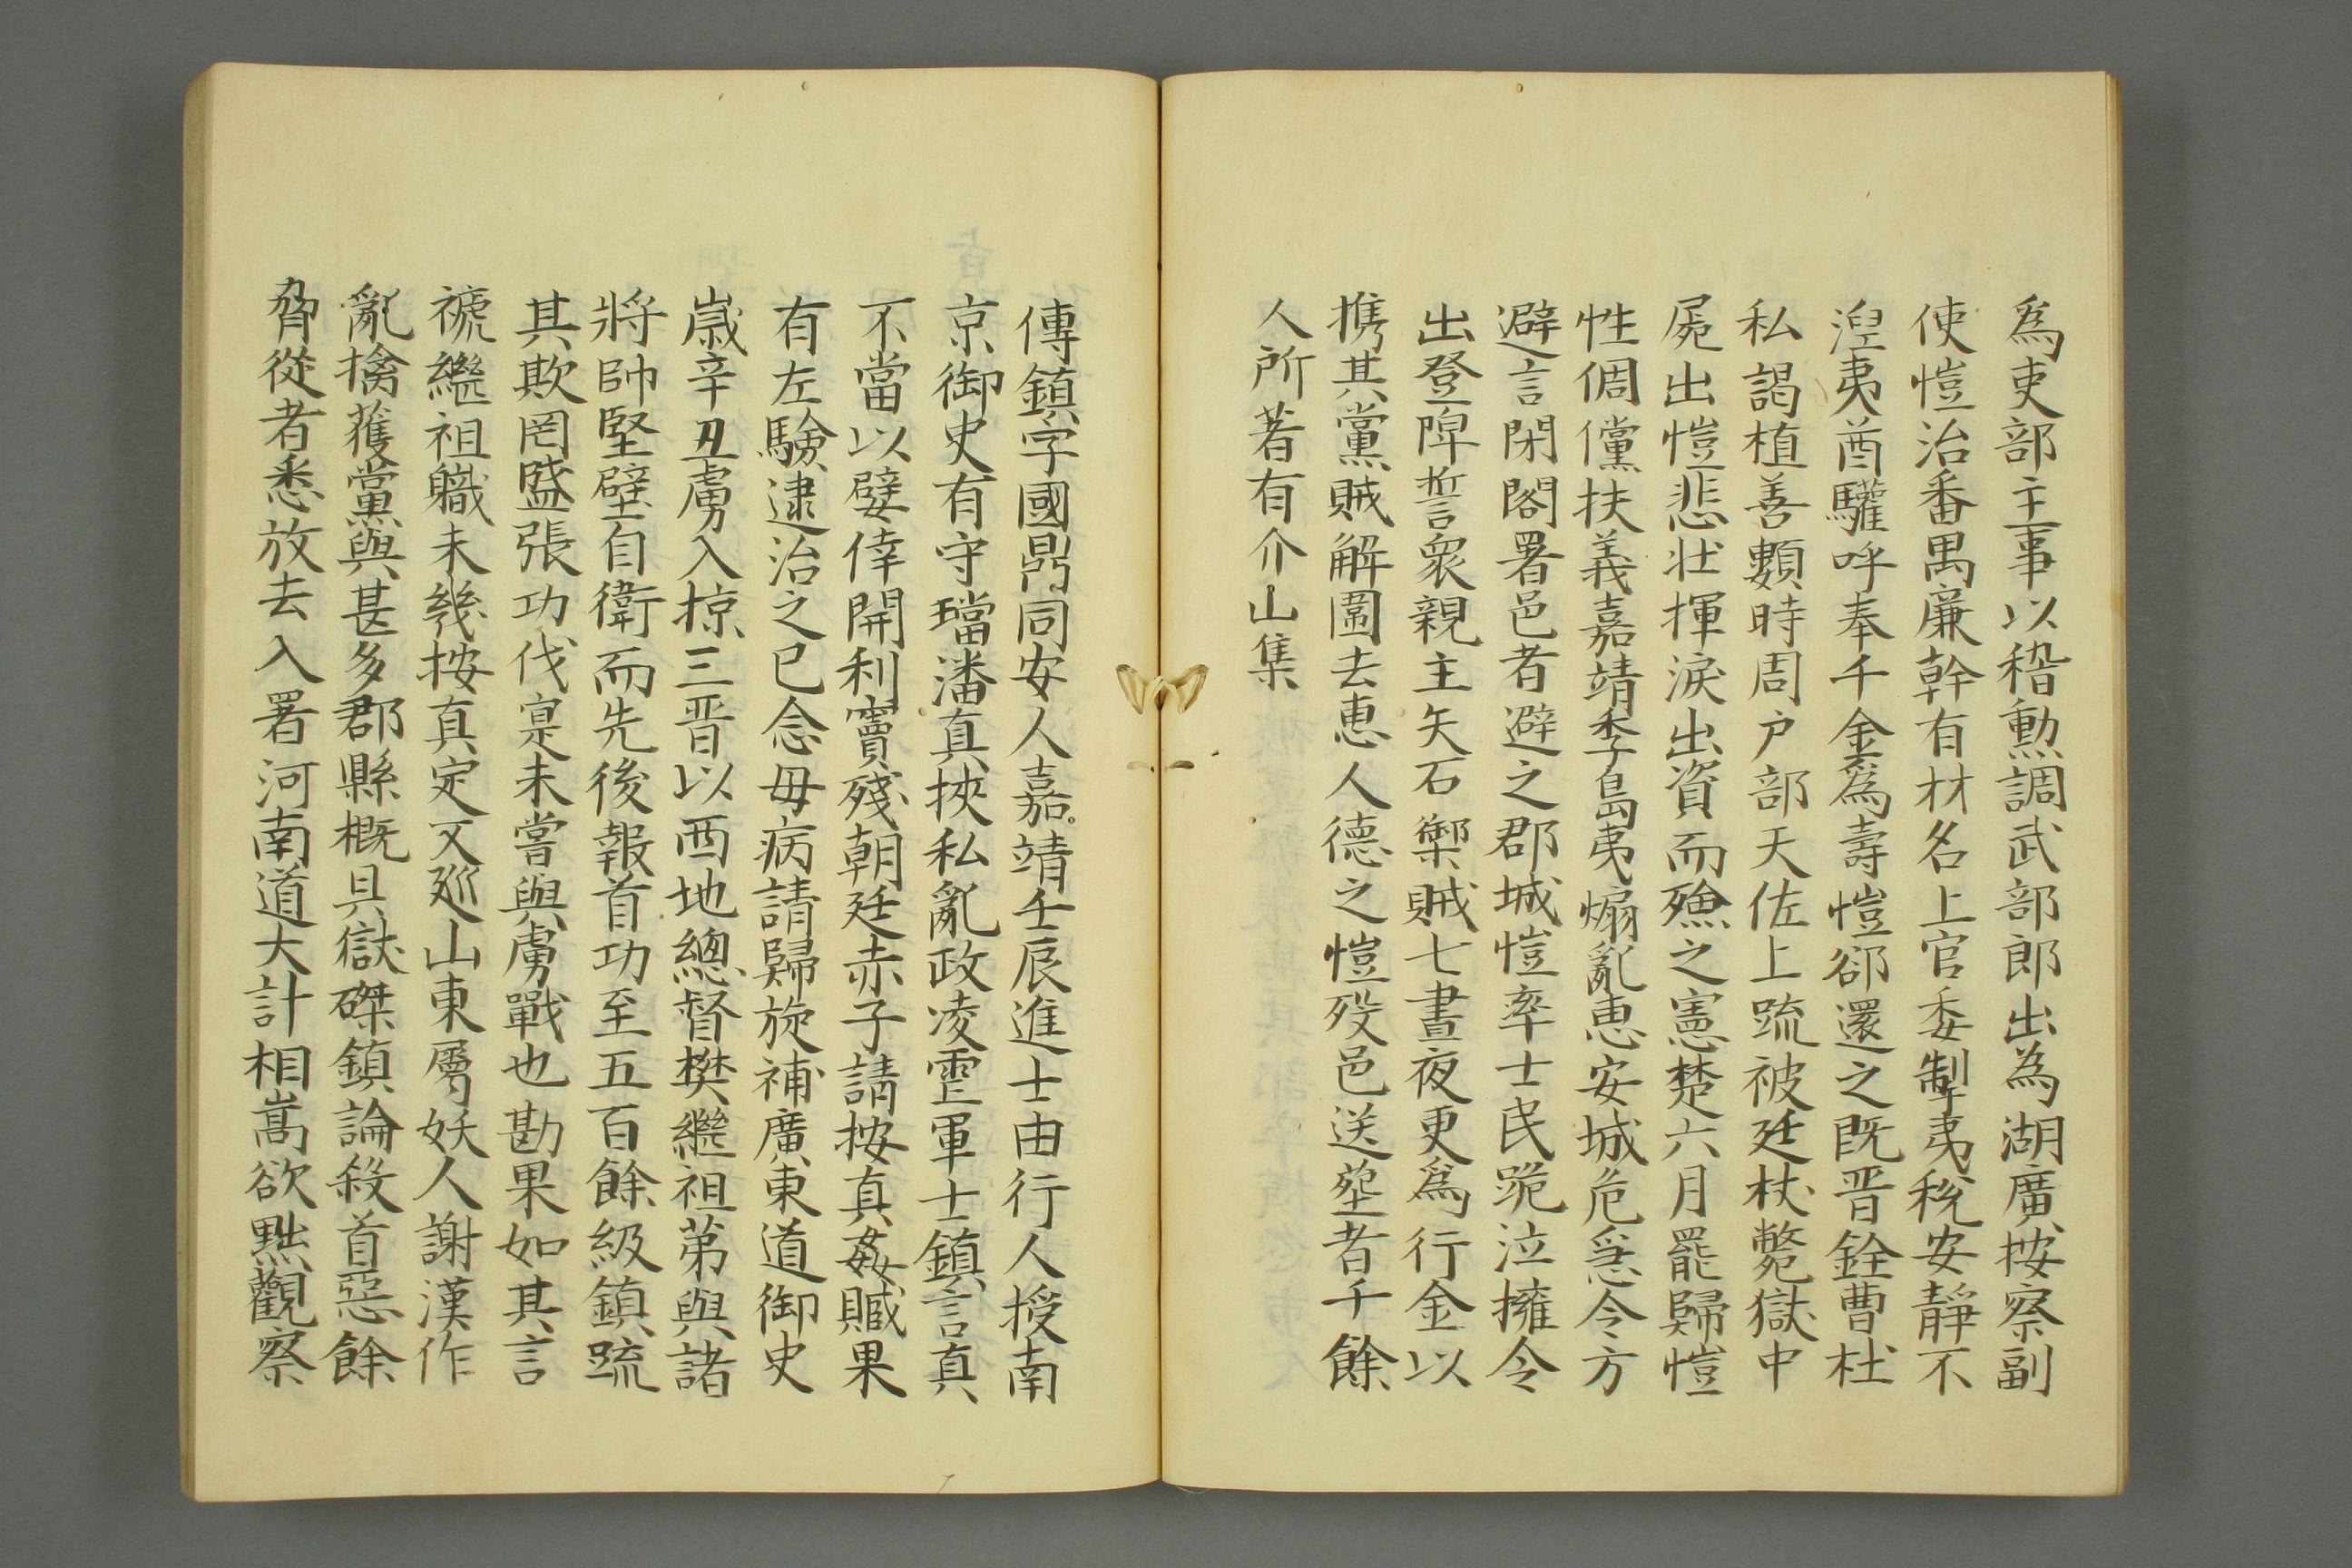 為吏部主事以稽勳調武部郎出為湖廣按察副
使愷治番禺廉幹有材名上官委掣夷稅安靜不
湼夷酋驩呼奉千金為壽愷郤還之既晋銓曹杜
私謁植善類時周户部天佐上䟽被廷杖斃獄中
屍出愷悲壯揮淚出資而殮之憲楚六月罷歸愷
性倜儻扶義嘉靖季島夷煽亂惠安城危急令方
避言閉閣署邑者避之郡城愷率士民跪泣擁令
出登陴誓眾親主矢石禦賊七晝夜更為行金以
携其黨賊解圍去惠人德之愷殁邑送塟者千餘
人所著有介山集
傳鎮字國鼎同安人嘉靖壬辰進士由行人授南
京御史有守璫潘真挾私亂政凌霊軍士鎮言真
不當以嬖倖開利竇殘朝廷赤子請按真姦贓果
有左驗逮治之已念母病請歸旋補廣東道御史
嵗辛丑虜入掠三晋以西地總督樊繼祖第與諸
將帥堅壁自衛而先後報首功至五百餘級鎮䟽
其欺罔盛張功伐寔未嘗與虜戰也勘果如其言
褫繼祖職未幾按真定又廵山東屬妖人謝漢作
亂擒獲黨與甚多郡縣概具獄磔鎮論殺首惡餘
脅從者悉放去入署河南道大計相嵩欲黜觀察